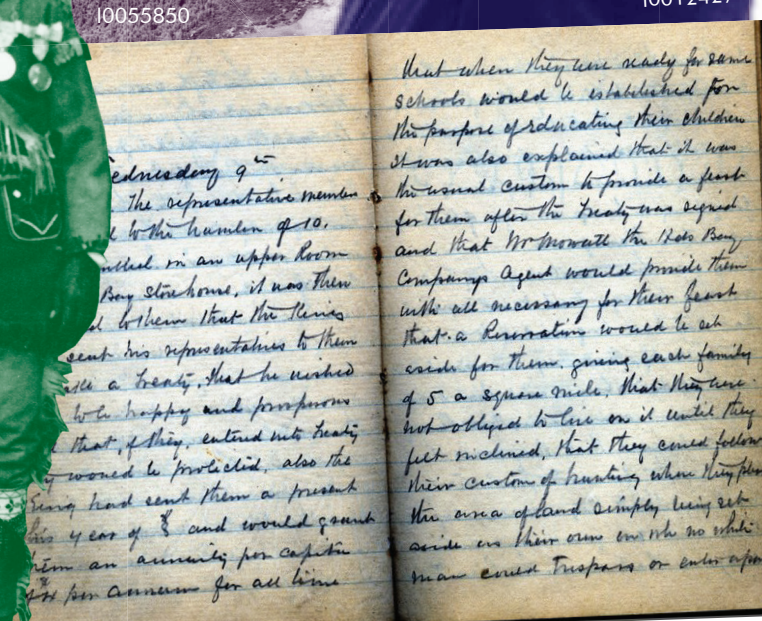 I0055850
I0012427
ednesday 9th
The representative member
to the number of 10.
mbled in an upper Room
Bay Storehouse, it was then
d to them that the King
sent his representatives to them
ake a Treaty, that he wished
to be happy and prosperous
that, if they, entered into Treaty
y would be protected, also the
King had sent them a present
this year of $8 and would grant
hem an annuity per capita
$4 per annum for all time
that when they were ready for same
schools would be established for
the purpose of educating their children
it was also explained that it was
the usual custom to provide a feast
for them after the Treaty was signed
and that Mr Mowatt the Hds Bay
Companys Agent would provide them
with all necessary for their feast
that a Reservation would be set
aside for them, giving each family
of 5 a square mile, that they were
not obliged to live on it until they
felt inclined, that they could follow
their custom of hunting where they plea
the area of land simply being set
aside as their own on wh no white
man could trespass or enter upon